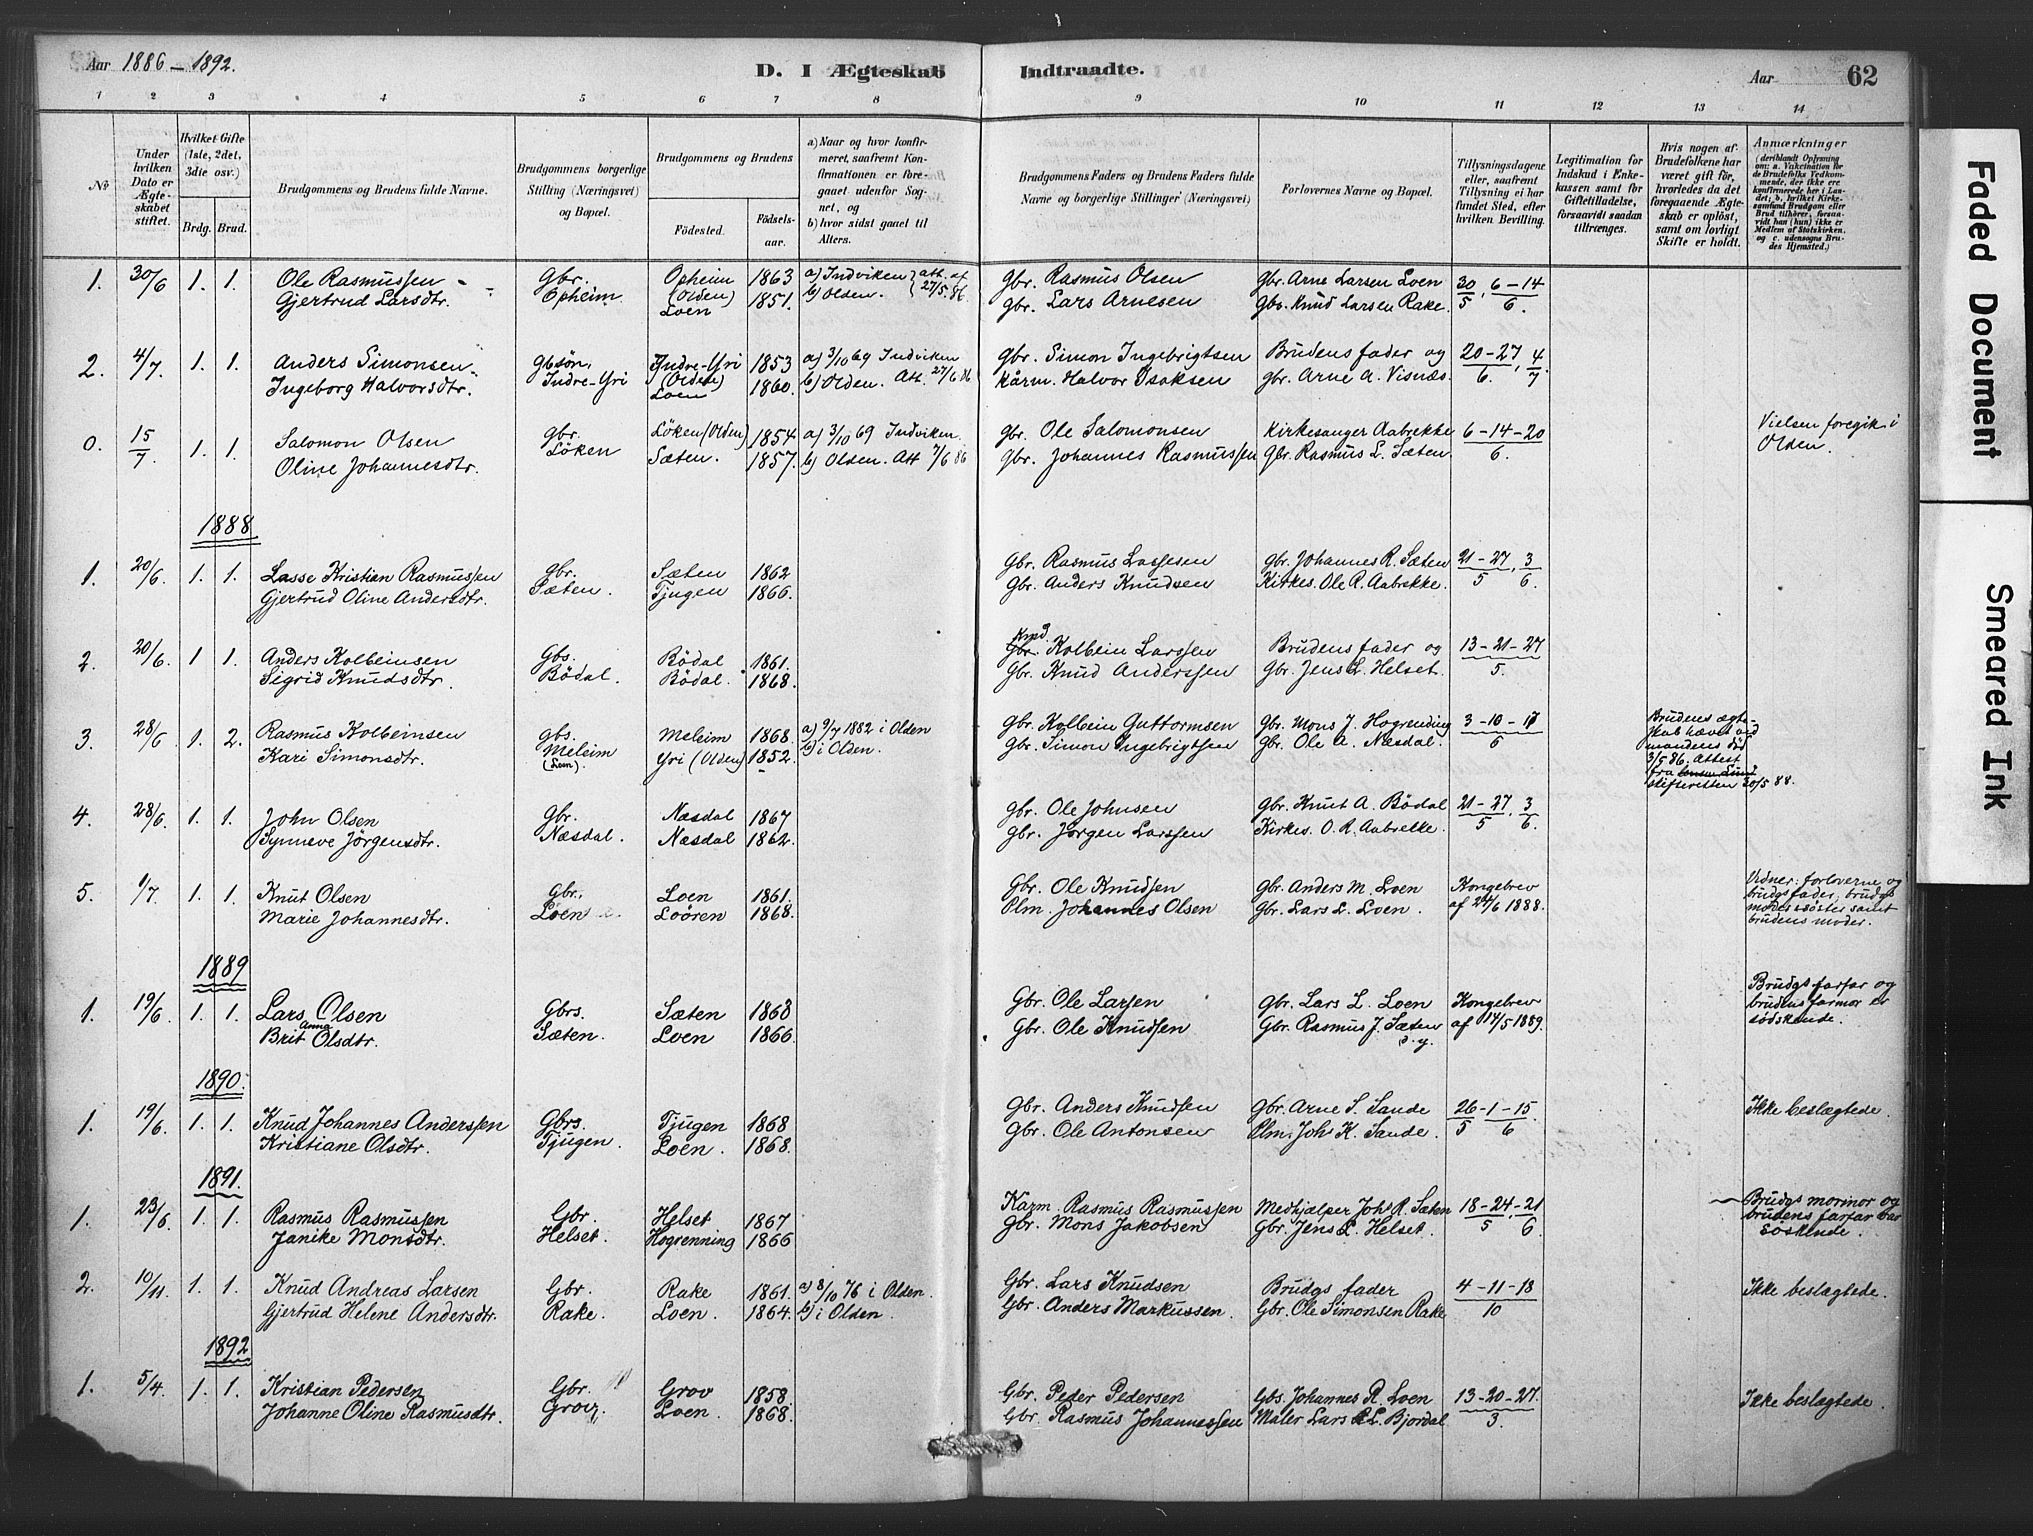 Aar 1886 – 1892.
D. I Ægteskab Indtraadte.
Aar 62
1 2 3 4 5 6 7 8 9 10 11 12 13 14
No
Under hvilken Dato er Ægteskabet stiftet.
Hvilket Gifte (1ste, 2det, 3die osv.)
Brdg. Brud.
Brudgommens og Brudens fulde Navne.
Brudgommens borgerlige Stilling (Næringsvei) og Bopæl.
Brudgommens og Brudens
Födested. Födselsaar.
a) Naar og hvor konfirmeret, saafremt Konfirmationen er foregaaet udenfor Sognet, og
b) hvor sidst gaaet til Alters.
Brudgommens Faders og Brudens Faders fulde Navne og borgerlige Stillinger (Næringsvei)
Forlovernes Navne og Bopæl.
Tillysningsdagene eller, saafremt Tillysning ei har fundet Sted, efter hvilken Bevilling.
Legitimation for Indskud i Enkekassen samt for Giftetilladelse, forsaavidt saadan tiltrænges.
Hvis nogen af Brudefolkene har været gift för, hvorledes da det foregaaende Ægteskab er oplöst, samt om lovligt Skifte er holdt.
Anmærkninger
(deriblandt Oplysning om: a. Vakcination for de Brudefolks Vedkommende, der ikke ere konfirmerede her i Landet; b. hvilket Kirkesamfund Brudgom eller Brud tilhörer, forsaavidt han (hun) ikke er Medlem af Statskirken, og c. udensogns Brudes Hjemsted.)
1. 30/6 1. 1. Ole Rasmussen gbr. Opheim 1863 a) Indviken att. af gbr. Rasmus Olsen gbr. Arne Larsen Loen 30/5, 6–14/6.
Gjertrud Larsdtr. Opheim. (Olden) Loen 1851. b) Olden. 27/5 86. gbr. Lars Arnesen gbr. Knud Larsen Rake.
2. 4/7. 1. 1. Anders Simonsen gbsön, Indre-Yri 1853 a) 3/10 69 Indviken gbr. Simon Ingebrigtsen Brudens fader og 20–27/6, 4/7
Ingeborg Halvorsdtr. Indre-Yri (Olden) Loen 1860. b) Olden. Att. 27/6 86 kårm. Halvor Isaksen gbr. Arne A. Visnæs.
0. 15/7 1. 1. Salomon Olsen gbr. Löken (Olden) 1854 a) 3/10 69 Indviken gbr. Ole Salomonsen Kirkesanger Aabrekke 6–14–20/6. Vielsen foregik i
Oline Johannesdtr. Löken Sæten. 1857. b) Olden. Att 7/6 86 gbr. Johannes Rasmussen gbr. Rasmus L. Sæten. Olden.
1888
1. 20/6. 1. 1. Lasse Kristian Rasmussen gbr. Sæten 1862 gbr. Rasmus Lassesen gbr. Johannes R. Sæten 21–27/5, 3/6.
Gjertrud Oline Andersdtr. Sæten. Tjugen 1866. gbr. Anders Knudsen Kirkes. Ole R. Aabrekke.
2. 20/6. 1 1. Anders Kolbeinsen Gbs. Bödal 1861. Gbr. Kolbein Larssen Brudens fader og 13–21–27/5.
Sigrid Knudsdtr. Bödal. Bödal. 1868. Gbr. Knud Anderssen Gbr. Jens L. Helset.
3. 28/6 1. 2. Rasmus Kolbeinsen gbs. Meleim 1868. a) 9/7 1882 i Olden Gbr. Kolbein Guttormsen Gbr. Mons J. Hogrending 3–10–17/6 Brudens ægteskab hævet ved mandens död 3/5 86. Attest fra skifteretten 30/5 88.
Kari Simonsdtr. Meleim (Loen). Yri (Olden) 1852. b) i Olden. Gbr. Simon Ingebrigtsen Gbr. Ole A. Næsdal.
4. 28/6. 1. 1. John Olsen Gbr. Næsdal 1867 gbr. Ole Johnsen gbr. Knut A. Bödal 21–27/5, 3/6.
Synneve Jörgensdtr. Næsdal. Næsdal 1862. gbr. Jörgen Larssen Kirkes. O. R. Aabrekke.
5. 1/7. 1. 1. Knut Olsen Gbr. Loen 1861. Gbr. Ole Knudsen Gbr. Anders M. Loen Kongebrev Vidner: forloverne og brudgs fader, brudgs moders söster samt brudens moder.
Marie Johannesdtr. Loen Loören 1868. Plm. Johannes Olsen Gbr. Lars L. Loen. af 24/6 1888.
1889
1. 19/6. 1. 1. Lars Olsen Gbrs. Sæten 1863 Gbr. Ole Larsen Gbr. Lars L. Loen Kongebrev Brudgs farfar og brudens farmor er södskende.
Brit Anna Olsdtr. Sæten. Loen 1866. Gbr. Ole Knudsen Gbr. Rasmus J. Sæten d. y. af 14/5 1889.
1890.
1. 19/6. 1. 1. Knud Johannes Anderssen Gbrs. Tjugen 1868 Gbr. Anders Knudsen Gbr. Arne S. Sande 26/5–1–15/6 Ikke beslægtede
Kristiane Olsdtr. Tjugen. Loen. 1868. Gbr. Ole Antonsen Plm. Joh K. Sande.
1891.
1. 23/6. 1. 1. Rasmus Rasmussen Gbr. Helset 1867 Kårm. Rasmus Rasmussen Medhjælper Joh R. Sæten 18–24/5–21/6 Brudgs mormor og brudens farfar var söskende.
Janike Monsdtr. Helset. Hogrenning 1866 Gbr. Mons Jakobsen Gbr. Jens L. Helset.
2. 10/11. 1. 1. Knud Andreas Larsen Gbr. Rake 1861. a) 8/10 76 i Olden. Gbr. Lars Knudsen Brudgs fader 4–11–18/10 Ikke beslægtede.
Gjertrud Helene Andersdtr. Rake. Loen. 1864. b) i Olden. Gbr. Anders Markussen. Gbr. Ole Simonsen Rake
1892
1. 5/4. 1. 1. Kristian Pedersen Gbr. Grov 1858 Gbr. Peder Pedersen Gbs. Johannes R. Loen 13–20–27./3. Ikke beslægtede.
Johanne Oline Rasmusdtr. Grov. Loen. 1868. Gbr. Rasmus Johannessen Maler Lars L. Bjordal
Faded Document
Smeared Ink